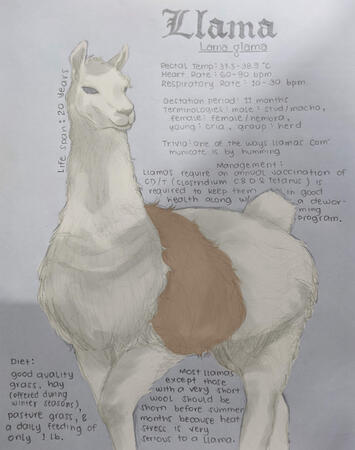 Llama
Lama glama
Rectal Temp: 37.5-38.9 °C
Heart Rate: 60-90 bpm
Respiratory Rate: 10-30 bpm
Gestation period: 11 months
Terminologies: male: stud/macho,
female: female/hembra,
young: cria, group: herd
Trivia: One of the ways llamas com
municate is by humming
Management:
Llamas require an annual vaccination of
CD/T (Clostridium C & D & Tetanus) is
required to keep them in good
health along a dewor-
ming
program.
Life span: 20 years
Diet:
good quality
grass, hay
(offered during
winter seasons),
pasture grass, &
a daily feeding of
only 1 lb.
Most llamas
except those
with a very short
wool should be
shorn before summer
months because heat
stress is very
serious to a llama.